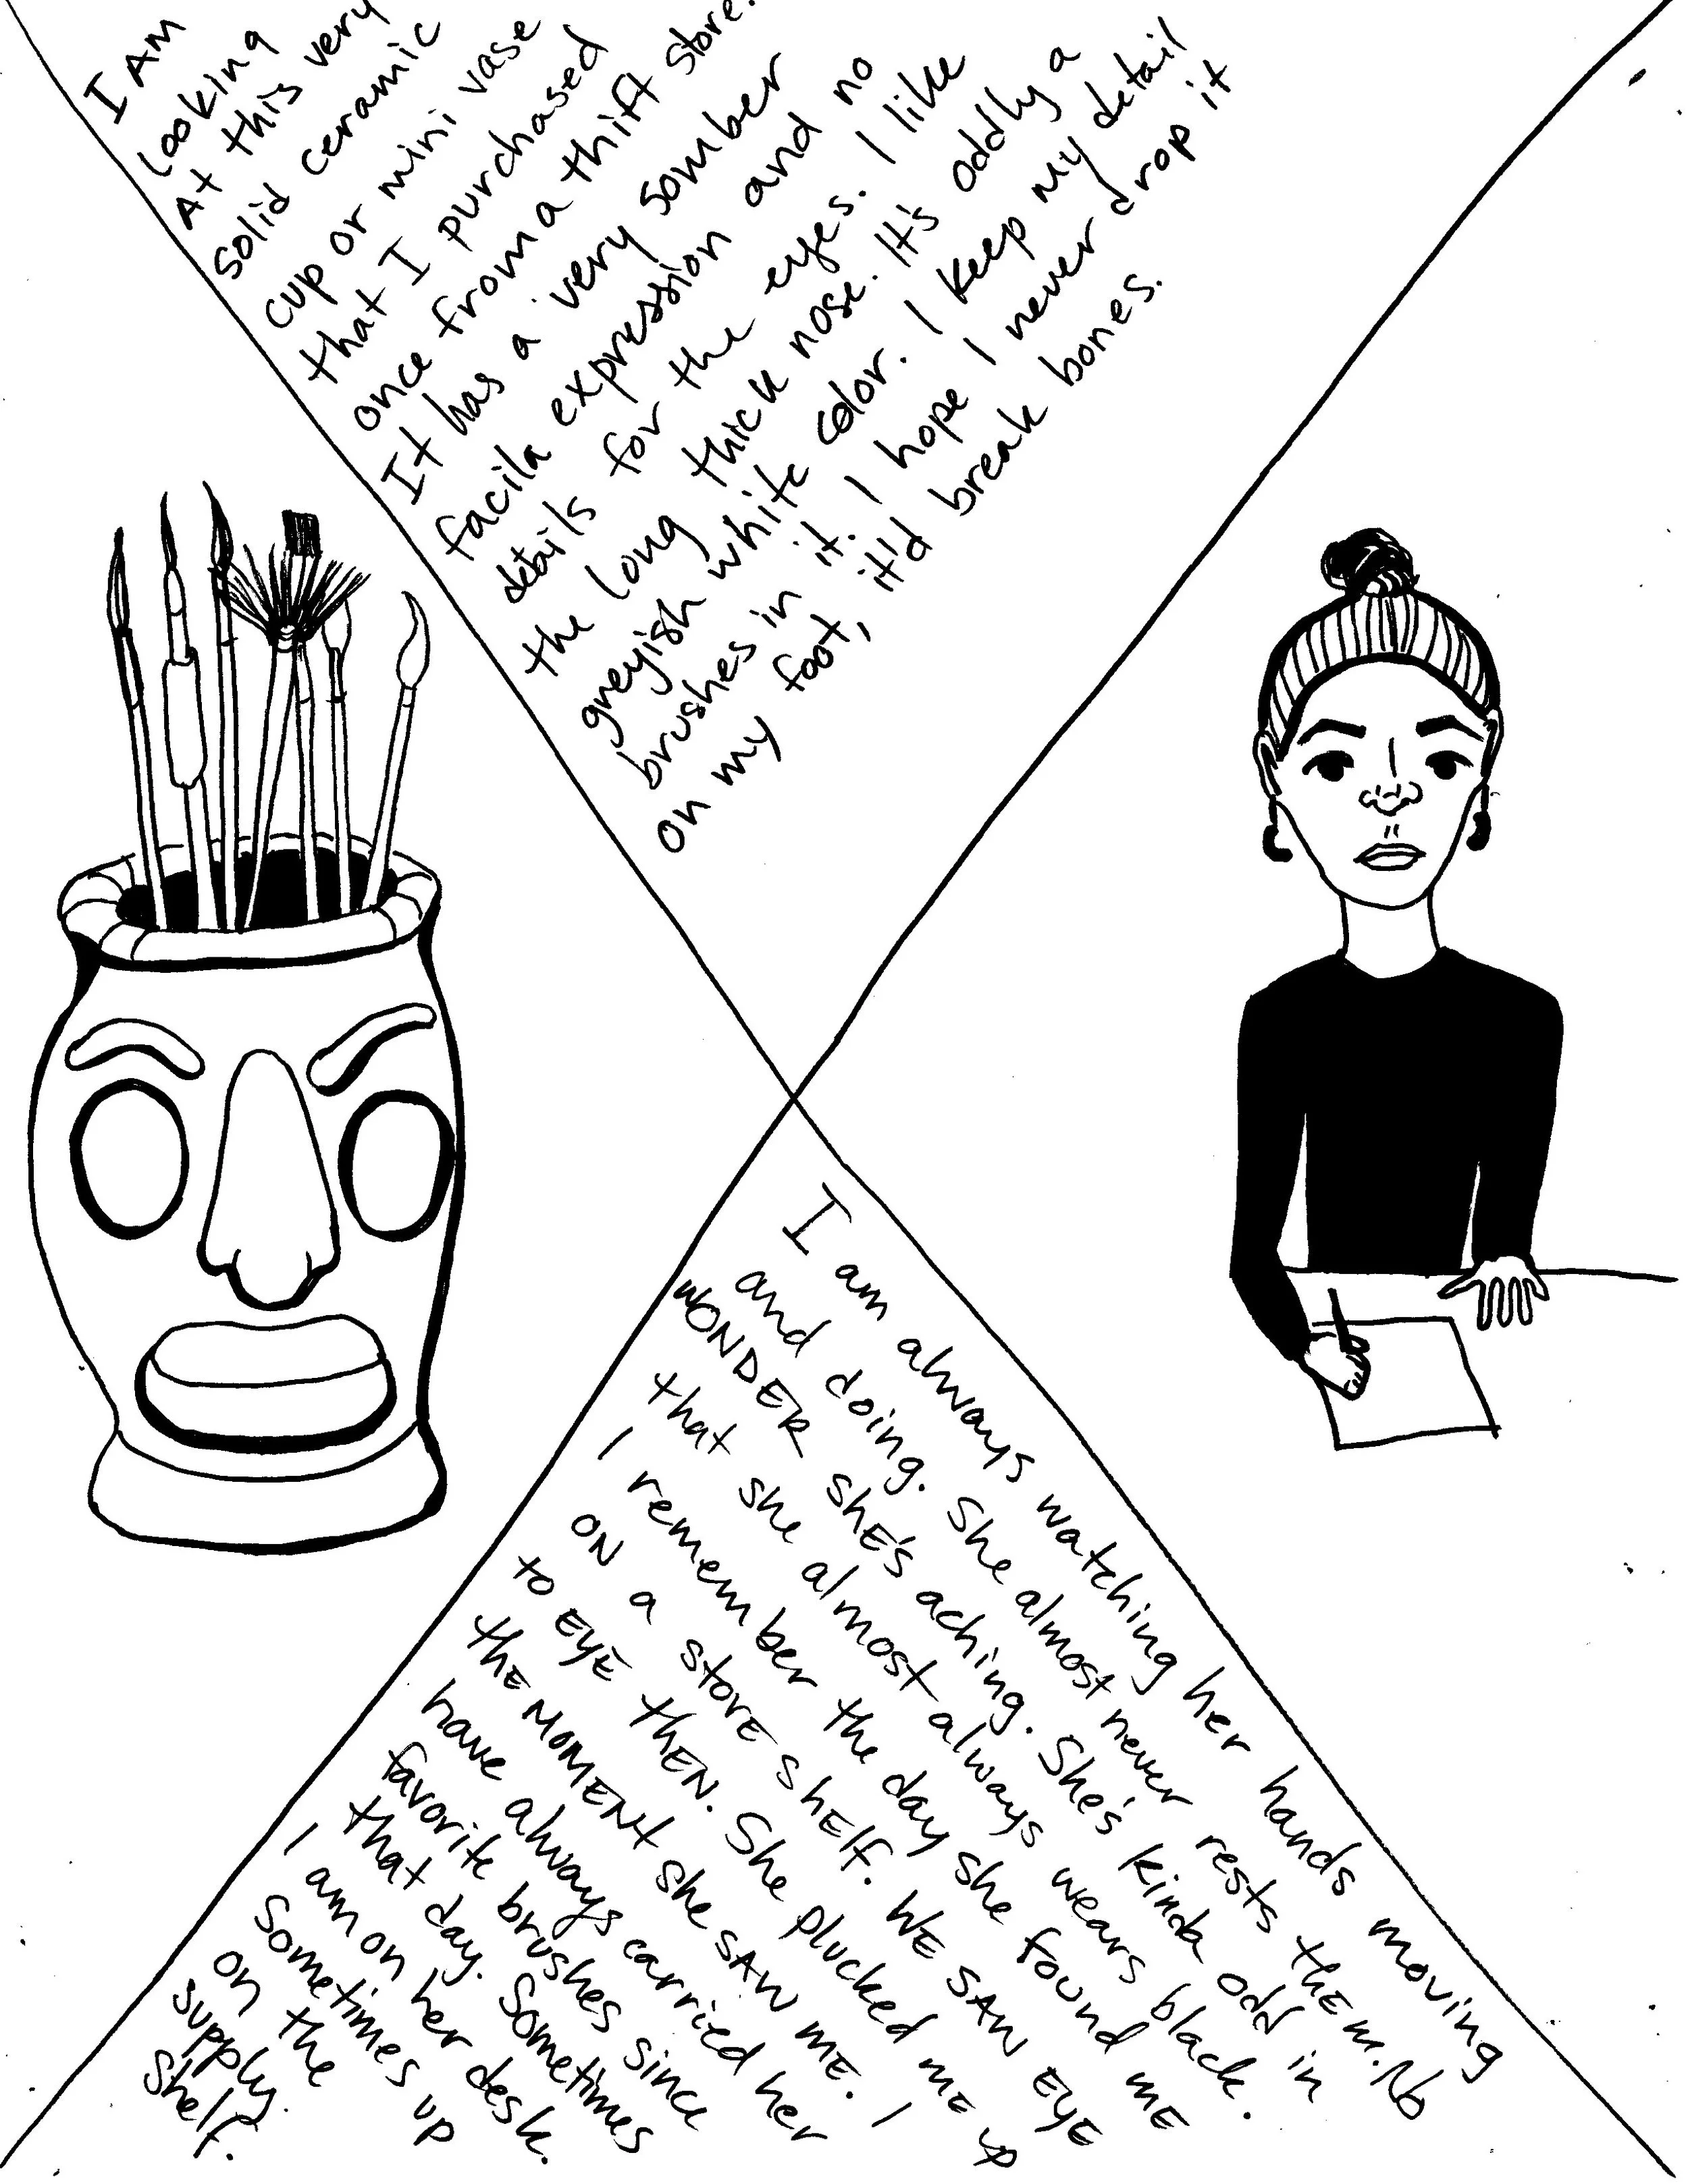 I AM
looking
At this very
solid ceramic
cup or mini vase
that I purchased
once from a thift store.
It has a very somber
facila expression and no
details for the eyes. I like
the long thick nose. It's oddly a
greyish white color. I keep my detail
brushes in it. I hope I never drop it
on my foot, it'd break bones.
I am always watching her hands moving
and doing. She almost never rests thEm. No
WONDER shE's aching. She's kinda odd in
that she almost always wears black.
I remember the day she found mE
ON a storE shElf. WE SAW EYE
to EYE thEN. She plucked mE up
thE MOMENt she SAW mE. I
have always carried her
favorite brushes since
that day. Sometimes
I am on her desk.
Sometimes up
on the
supply
shelf.